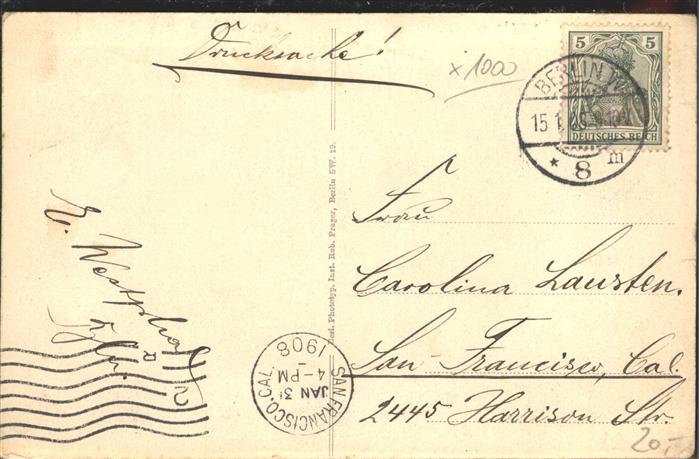 Drucksache!
x1000
5 5
DEUTSCHES REICH
BERLIN W.
15 1
* 8 m
Frau
Carolina Laursten.
San Francisco, Cal.
2445 Harrison Str.
20.-
E. Westphal
Berl. Phototyp. Inst. Rob. Prager, Berlin SW. 19.
SAN FRANCISCO, CAL.
JAN 31
4-PM
1908
2